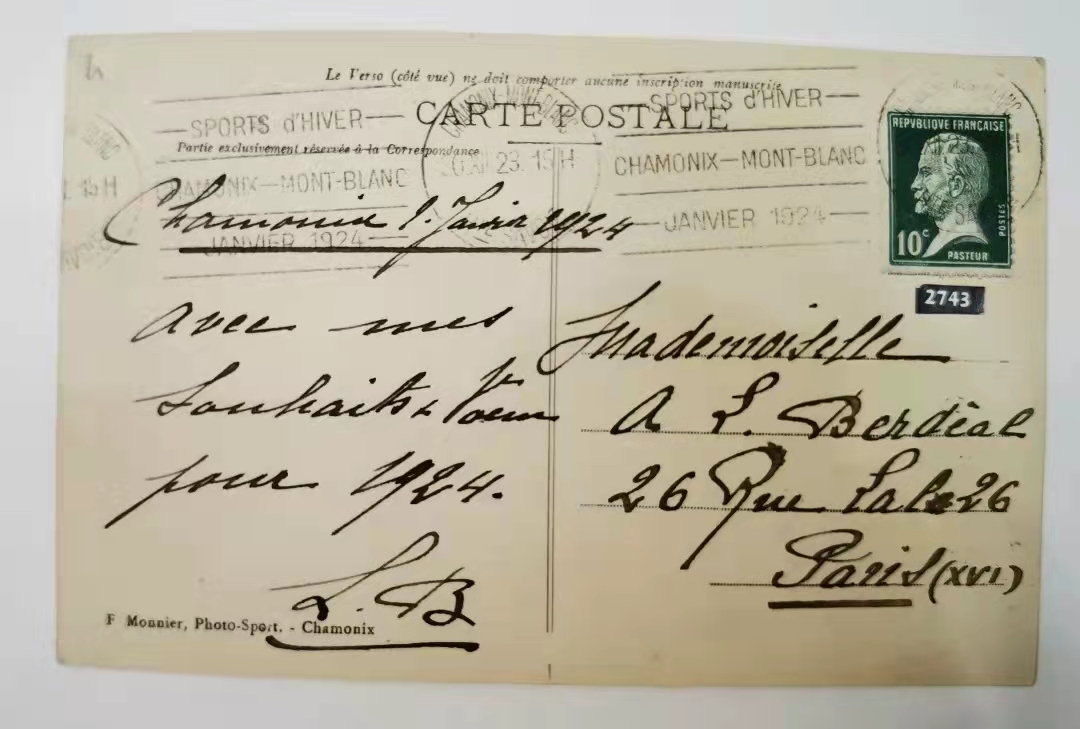 Le Verso (côté vue) ne doit comporter aucune inscription manuscrite
CARTE POSTALE
Partie exclusivement réservée à la Correspondance
SPORTS d'HIVER
CHAMONIX-MONT-BLANC
JANVIER 1924
CHAMONIX-MONT-BLANC
23. 15H
SPORTS d'HIVER
CHAMONIX-MONT-BLANC
JANVIER 1924
15H
REPVBLIQUE FRANÇAISE
POSTES
10c
PASTEUR
2743
Chamonix 1. Janvier 1924
avec mes
Souhaits & Voeux
pour 1924.
L. B
Mademoiselle
A L. Berdéal
26 Rue 26
Paris (XVI)
F Monnier, Photo-Sport. - Chamonix